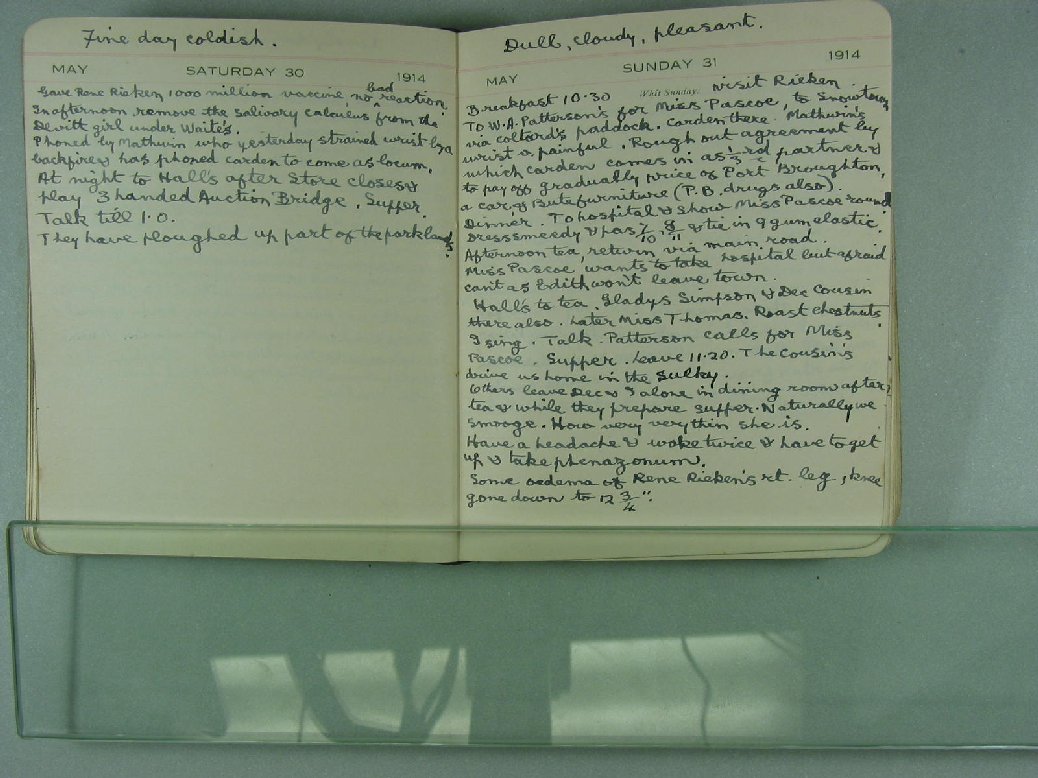 Fine day coldish.
MAY SATURDAY 30 1914
Gave Rene Rieken 1000 million vaccine, no bad reaction
In afternoon remove the salivary calculus from the
Dewitt girl under Waite's.
Phoned by Mathwin who yesterday strained wrist by a
backfire & has phoned Carden to come as locum.
At night to Halls after Store closes &
play 3 handed Auction Bridge. Supper.
Talk till 1.0.
They have ploughed up part of the parklands
Dull, cloudy, pleasant.
MAY SUNDAY 31 1914
Whit Sunday.
visit Rieken
Breakfast 10.30
To W.A. Patterson's for Miss Pascoe, to Snowtown
via Coltard's paddock. Carden there. Mathwin's
wrist is painful. Rough out agreement by
which Carden comes in as 1/3 rd partner &
to pay off gradually price of Port Broughton,
a car, & Bute furniture (P.B. drugs also).
Dinner. To hospital & show Miss Pascoe round
Dress Smeedy & pass 7/10 8/11 & tie in 9 gum elastic.
Afternoon tea, return via main road.
Miss Pascoe wants to take hospital but afraid
cant as Edith won't leave town.
Hall's to tea. Gladys Simpson & Dec Cousin
there also. Later Miss Thomas. Roast chestnuts
I sing. Talk. Patterson calls for Miss
Pascoe. Supper. Leave 11.20. The Cousin's
drive us home in the sulky.
Others leave Dec & I alone in dining room after
tea & while they prepare supper. Naturally we
smooge. How very very thin she is.
Have a headache & woke twice & have to get
up & take phenazonum.
Some oedema of Rene Rieken's rt. leg, knee
gone down to 12 3/4".